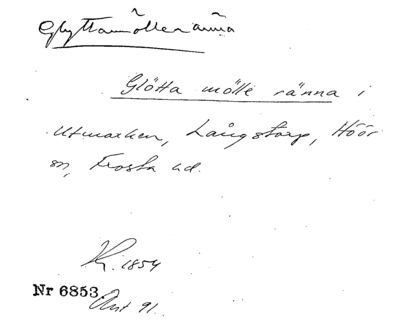 Glyttamölleränna
Glötta mölle ränna i
Utmarken, Långstorp, Höör
sn, Frosta hd.
K. 1854
Nr 6853
Ant 91.